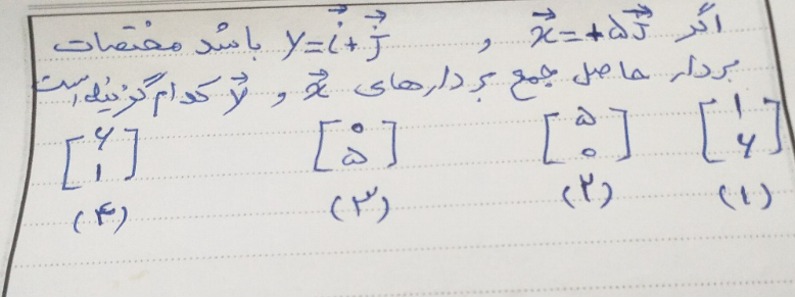 اگر x⃗ = +۵j⃗ , y = i⃗ + j⃗ باشد مختصات
بردار حاصل جمع بردارهای x⃗ و y⃗ کدام گزینه است
[۱ ۶] [۵ ۰] [۰ ۵] [۶ ۱]
(۱) (۲) (۳) (۴)